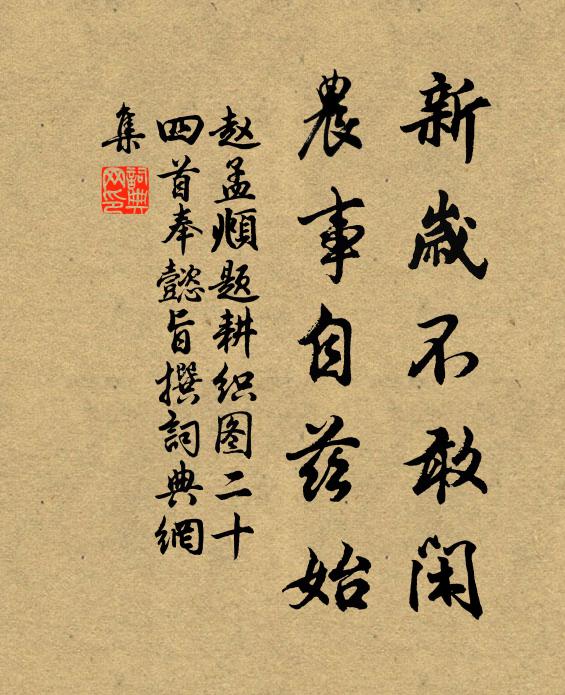 新歲不敢閑
農事自茲始
赵孟頫题耕织图二十
四首奉懿旨撰詞典網
集
詞典網印